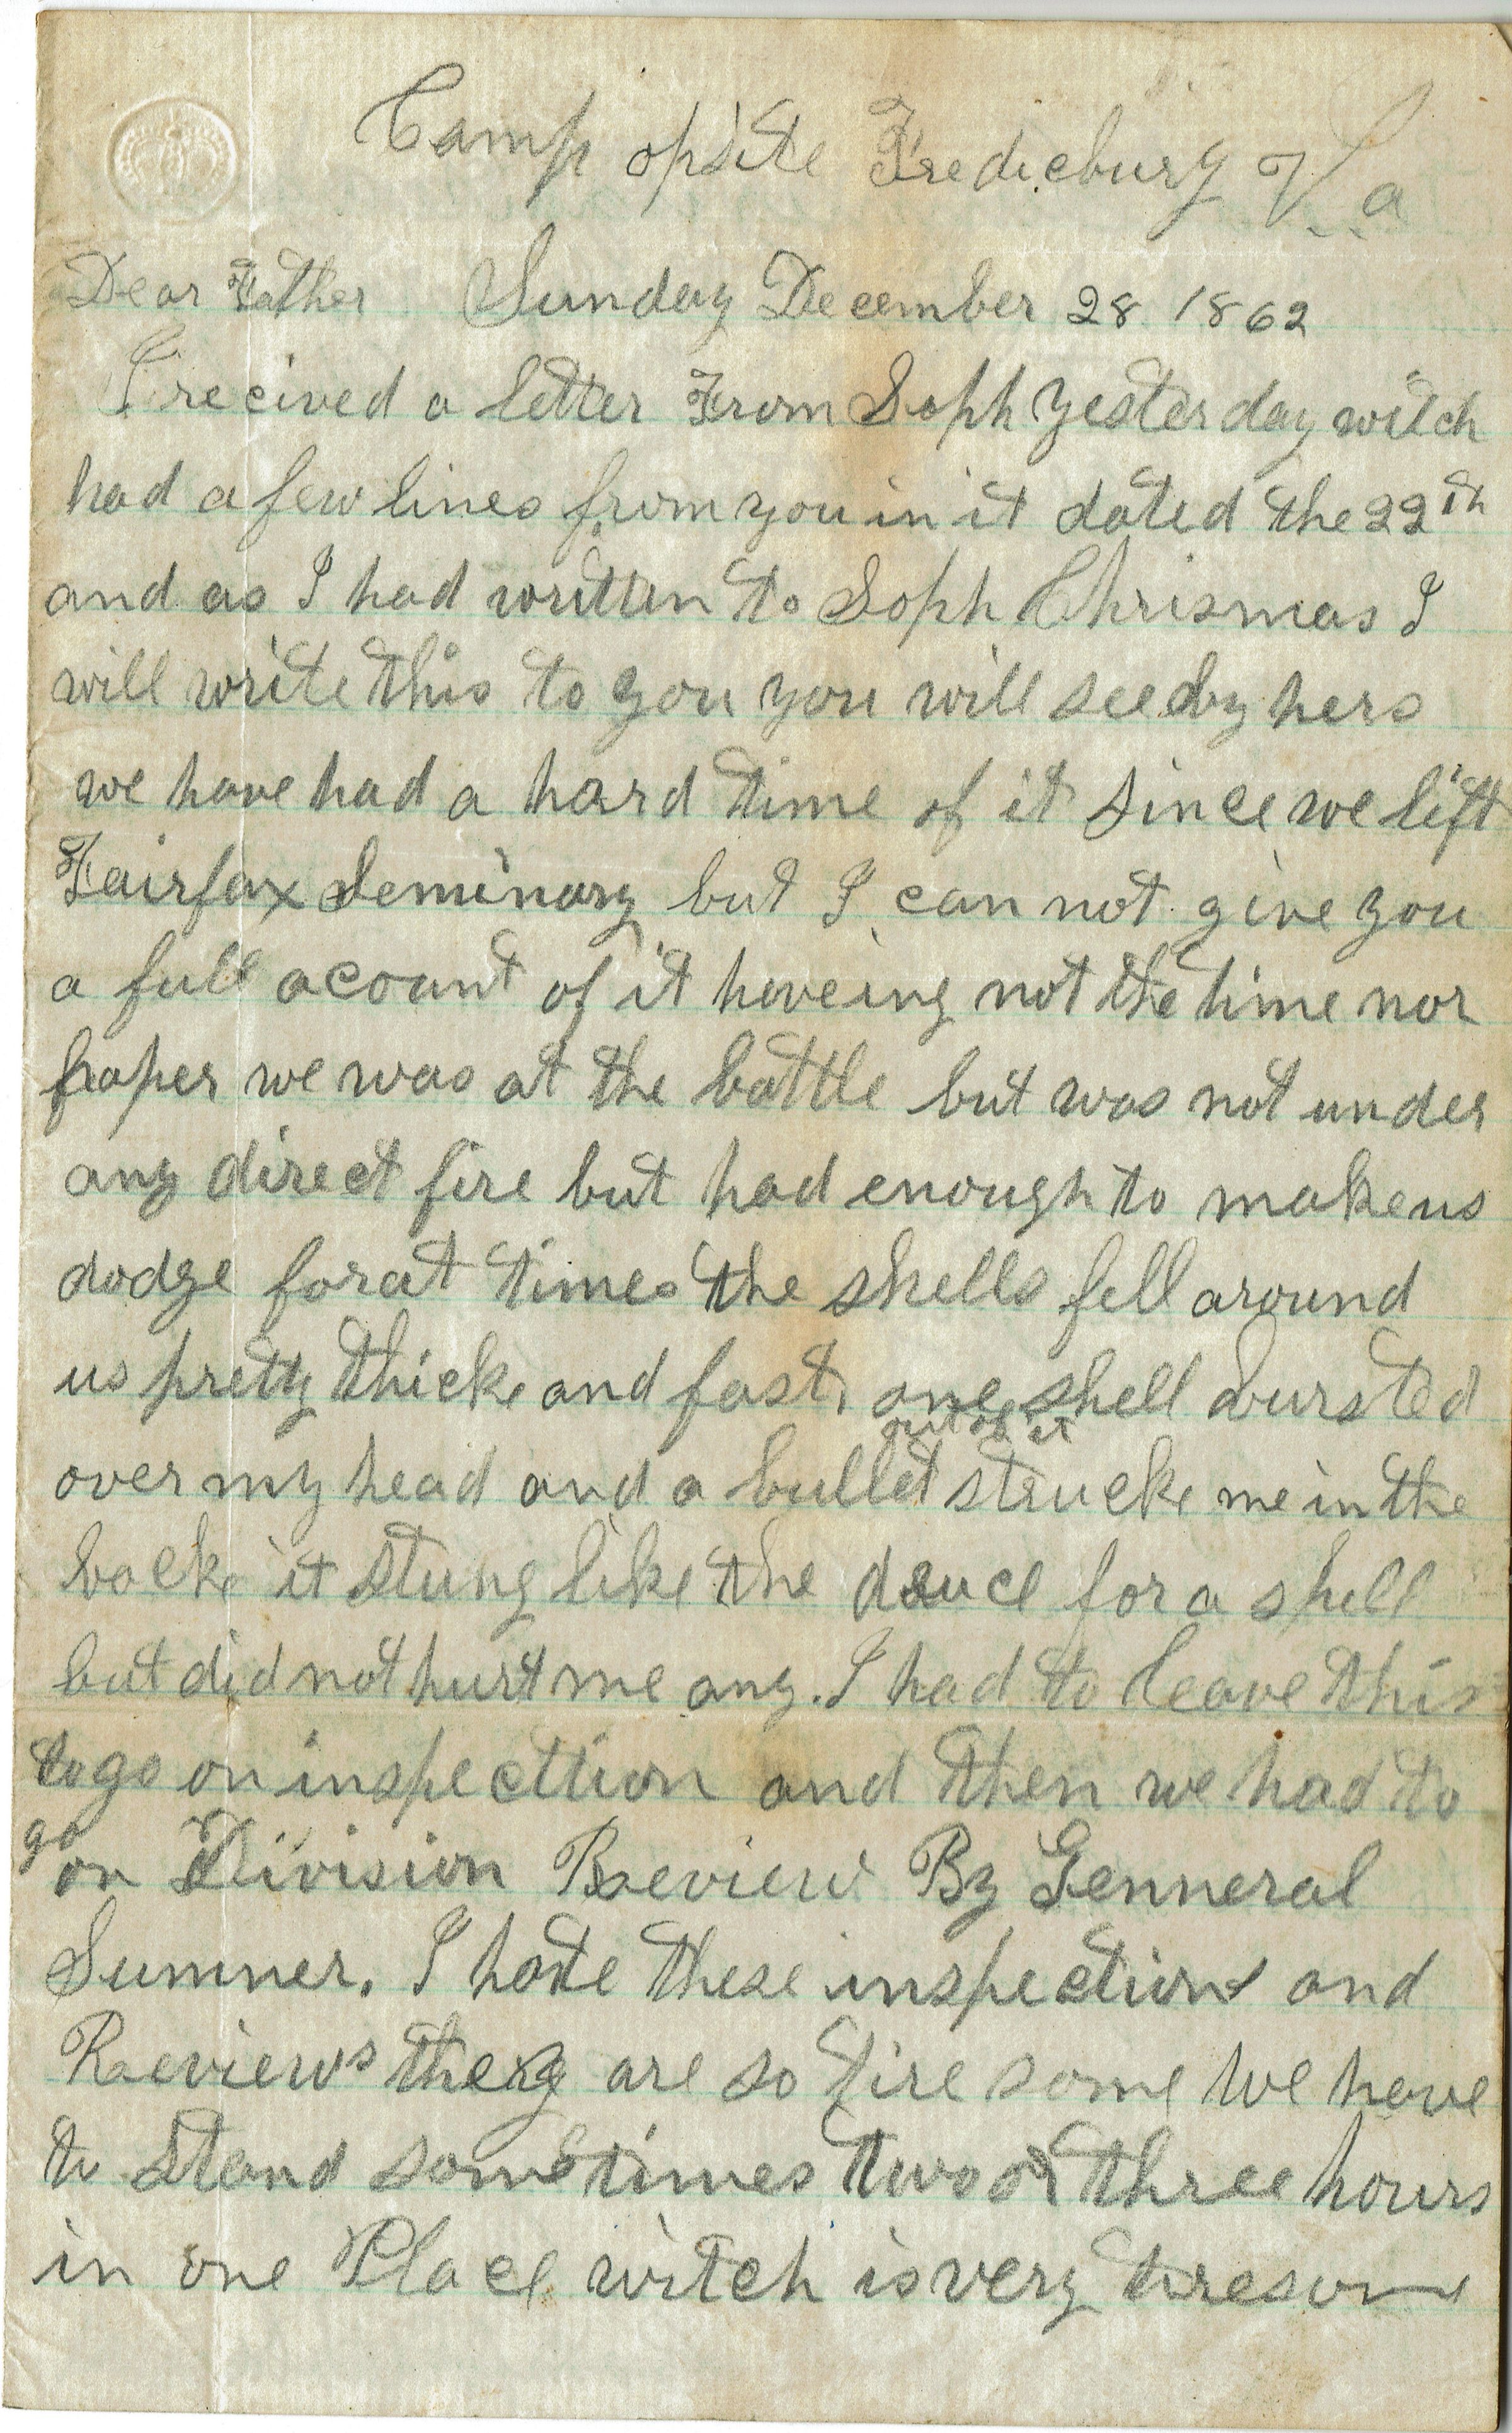 Camp opsite Fredicburg Va
Dear Father Sunday December 28 1862
I recived a letter From Soph yesterday witch
had a few lines from you in it dated the 22th
and as I had written to Soph Chrismas I
will write this to you you will see by hers
we have had a hard time of it since we lift
Fairfax Seminary but I can not give you
a full acount of it haveing not the time nor
paper we was at the battle but was not under
any direct fire but had enough to make us
dodge for at times the shells fell around
us pretty thicke and fast, one shell bursted
out of it
over my head and a bullet strucke me in the
backe it stung like the deuce for a spell
but did not hurt me any. I had to leave this
to go on inspecttion and then we had to
go on Division Reeview By Genneral
Sumner. I hate these inspections and
Reeviews they are so tire some We have
to stand sometimes two or three hours
in one Place witch is very tiresome